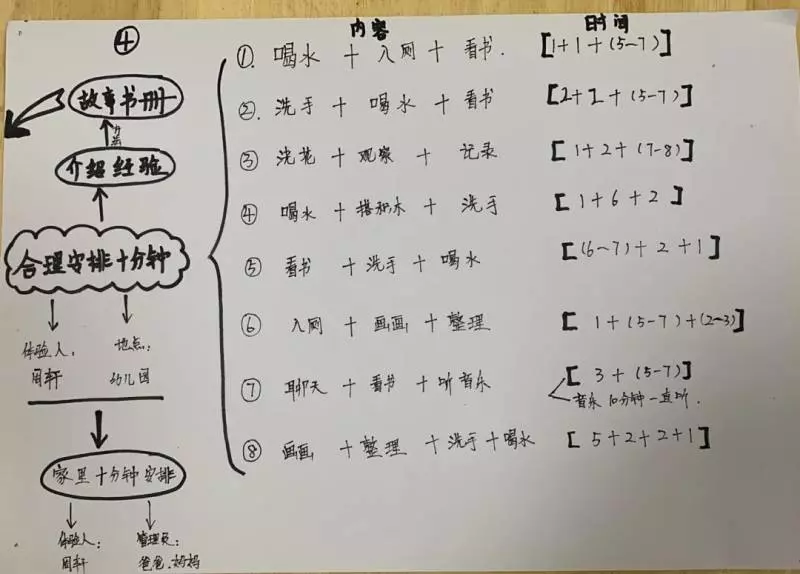 ④
故事书册
介绍经验
合理安排十分钟
体验人：
周轩
地点：
幼儿园
家里十分钟安排
体验人：
周轩
管理员：
爸爸.妈妈
内容 时间
①. 喝水 + 入厕 + 看书. [1+1+(5-7)]
②. 洗手 + 喝水 + 看书 [2+1+(5-7)]
③ 浇花 + 观察 + 记录 [1+2+(7-8)]
④ 喝水 + 搭积木 + 洗手 [1+6+2]
⑤ 看书 + 洗手 + 喝水 [(6-7)+2+1]
⑥ 入厕 + 画画 + 整理 [1+(5-7)+(2-3)]
⑦ 聊天 + 看书 + 听音乐 [3+(5-7)]
音乐10分钟一直听.
⑧ 画画 + 整理 + 洗手 + 喝水 [5+2+2+1]